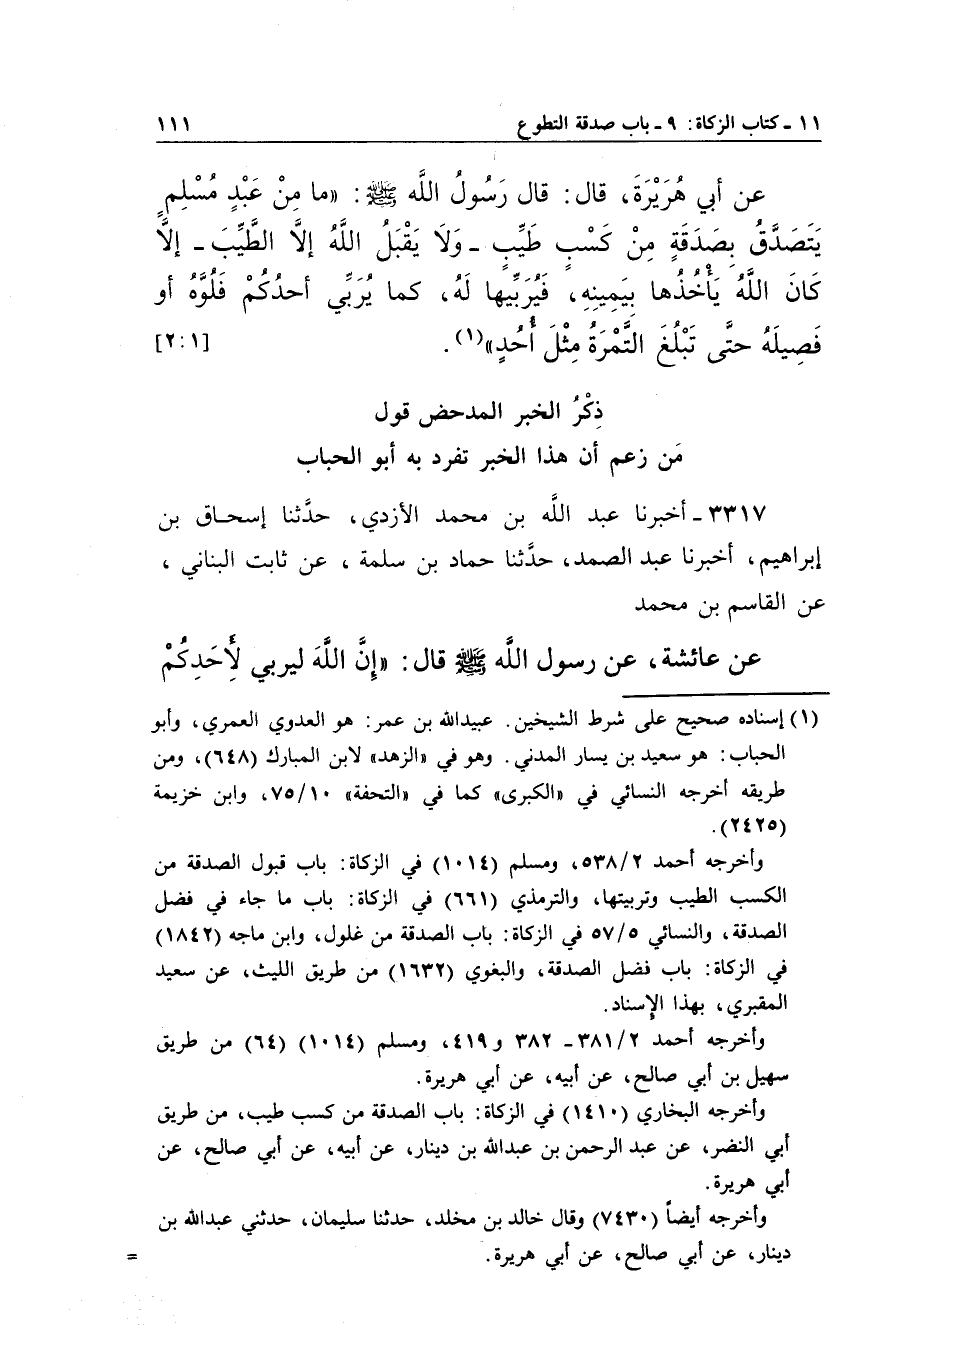 ١١ - كتاب الزكاة: ٩ - باب صدقة التطوع ١١١
عن أبي هُرَيْرَةَ، قال: قال رَسُولُ اللَّه ﷺ: «ما مِنْ عَبْدٍ مُسْلِمٍ
يَتَصَدَّقُ بِصَدَقَةٍ مِنْ كَسْبٍ طَيِّبٍ - وَلَا يَقْبَلُ اللَّهُ إلَّا الطَّيِّبَ - إلَّا
كَانَ اللَّهُ يَأْخُذُها بِيَمِينِهِ، فَيُرَبِّيها لَهُ، كما يُرَبِّي أحدُكُمْ فَلُوَّهُ أو
فَصِيلَهُ حتَّى تَبْلُغَ التَّمْرَةُ مِثْلَ أُحُدٍ»(١). [٢:١]
ذِكْرُ الخبر المدحض قول
مَن زعم أن هذا الخبر تفرد به أبو الحباب
٣٣١٧ - أخبرنا عبد اللَّه بن محمد الأزدي، حدَّثنا إسحاق بن
إبراهيم، أخبرنا عبد الصمد، حدَّثنا حماد بن سلمة، عن ثابت البناني،
عن القاسم بن محمد
عن عائشة، عن رسول اللَّه ﷺ قال: «إنَّ اللَّهَ ليربي لأَحَدِكُمْ
(١) إسناده صحيح على شرط الشيخين. عبيدالله بن عمر: هو العدوي العمري، وأبو
الحباب: هو سعيد بن يسار المدني. وهو في «الزهد» لابن المبارك (٦٤٨)، ومن
طريقه أخرجه النسائي في «الكبرى» كما في «التحفة» ٧٥/١٠، وابن خزيمة
(٢٤٢٥).
وأخرجه أحمد ٥٣٨/٢، ومسلم (١٠١٤) في الزكاة: باب قبول الصدقة من
الكسب الطيب وتربيتها، والترمذي (٦٦١) في الزكاة: باب ما جاء في فضل
الصدقة، والنسائي ٥٧/٥ في الزكاة: باب الصدقة من غلول، وابن ماجه (١٨٤٢)
في الزكاة: باب فضل الصدقة، والبغوي (١٦٣٢) من طريق الليث، عن سعيد
المقبري، بهذا الإسناد.
وأخرجه أحمد ٣٨١/٢ - ٣٨٢ و٤١٩، ومسلم (١٠١٤) (٦٤) من طريق
سهيل بن أبي صالح، عن أبيه، عن أبي هريرة.
وأخرجه البخاري (١٤١٠) في الزكاة: باب الصدقة من كسب طيب، من طريق
أبي النضر، عن عبد الرحمن بن عبدالله بن دينار، عن أبيه، عن أبي صالح، عن
أبي هريرة.
وأخرجه أيضاً (٧٤٣٠) وقال خالد بن مخلد، حدثنا سليمان، حدثني عبدالله بن
دينار، عن أبي صالح، عن أبي هريرة. =